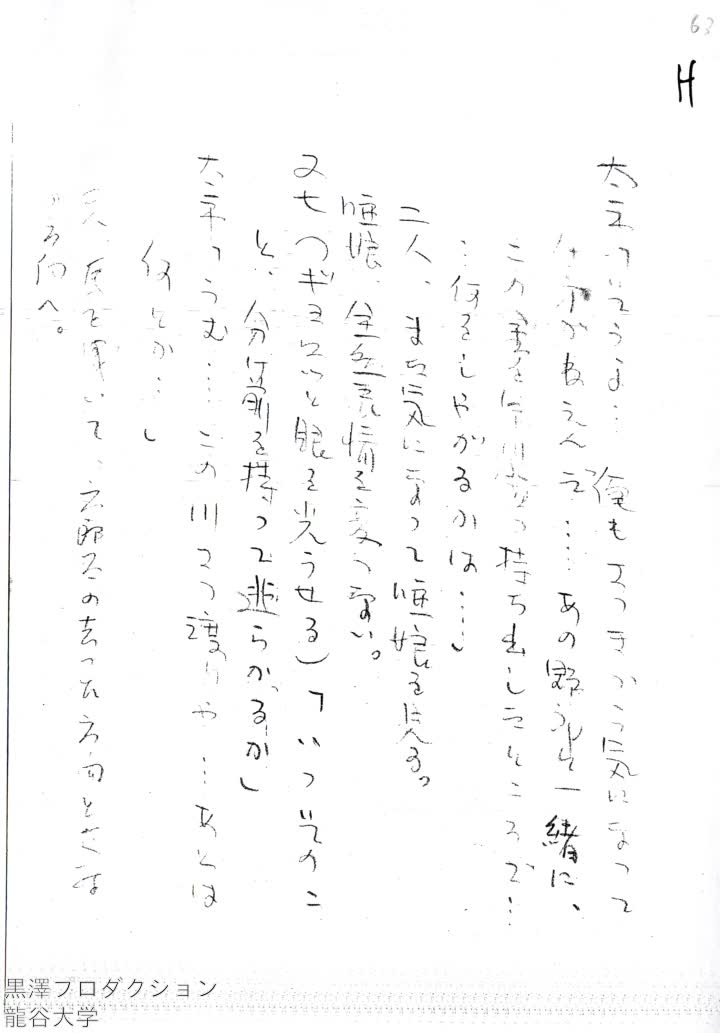 63
H
太平「いてうな…俺もさっきから気になって
仕方がねえんだ……あの野郎と一緒に、
この金を早川領へ持ち出したところで…
…何をしやがるかは……」
二人、また気になって唖娘を見る。
唖娘、全然表情を変へない。
又七「(ギョロッと眼を光らせる)「いっそのこ
と、分け前を持って逃らかるか」
太平「うむ…この川さへ渡りや…あとは
何とか…」
二人、尻を叩いて、六郎太の去った方向と
方向へ。
黒澤プロダクション
龍谷大学